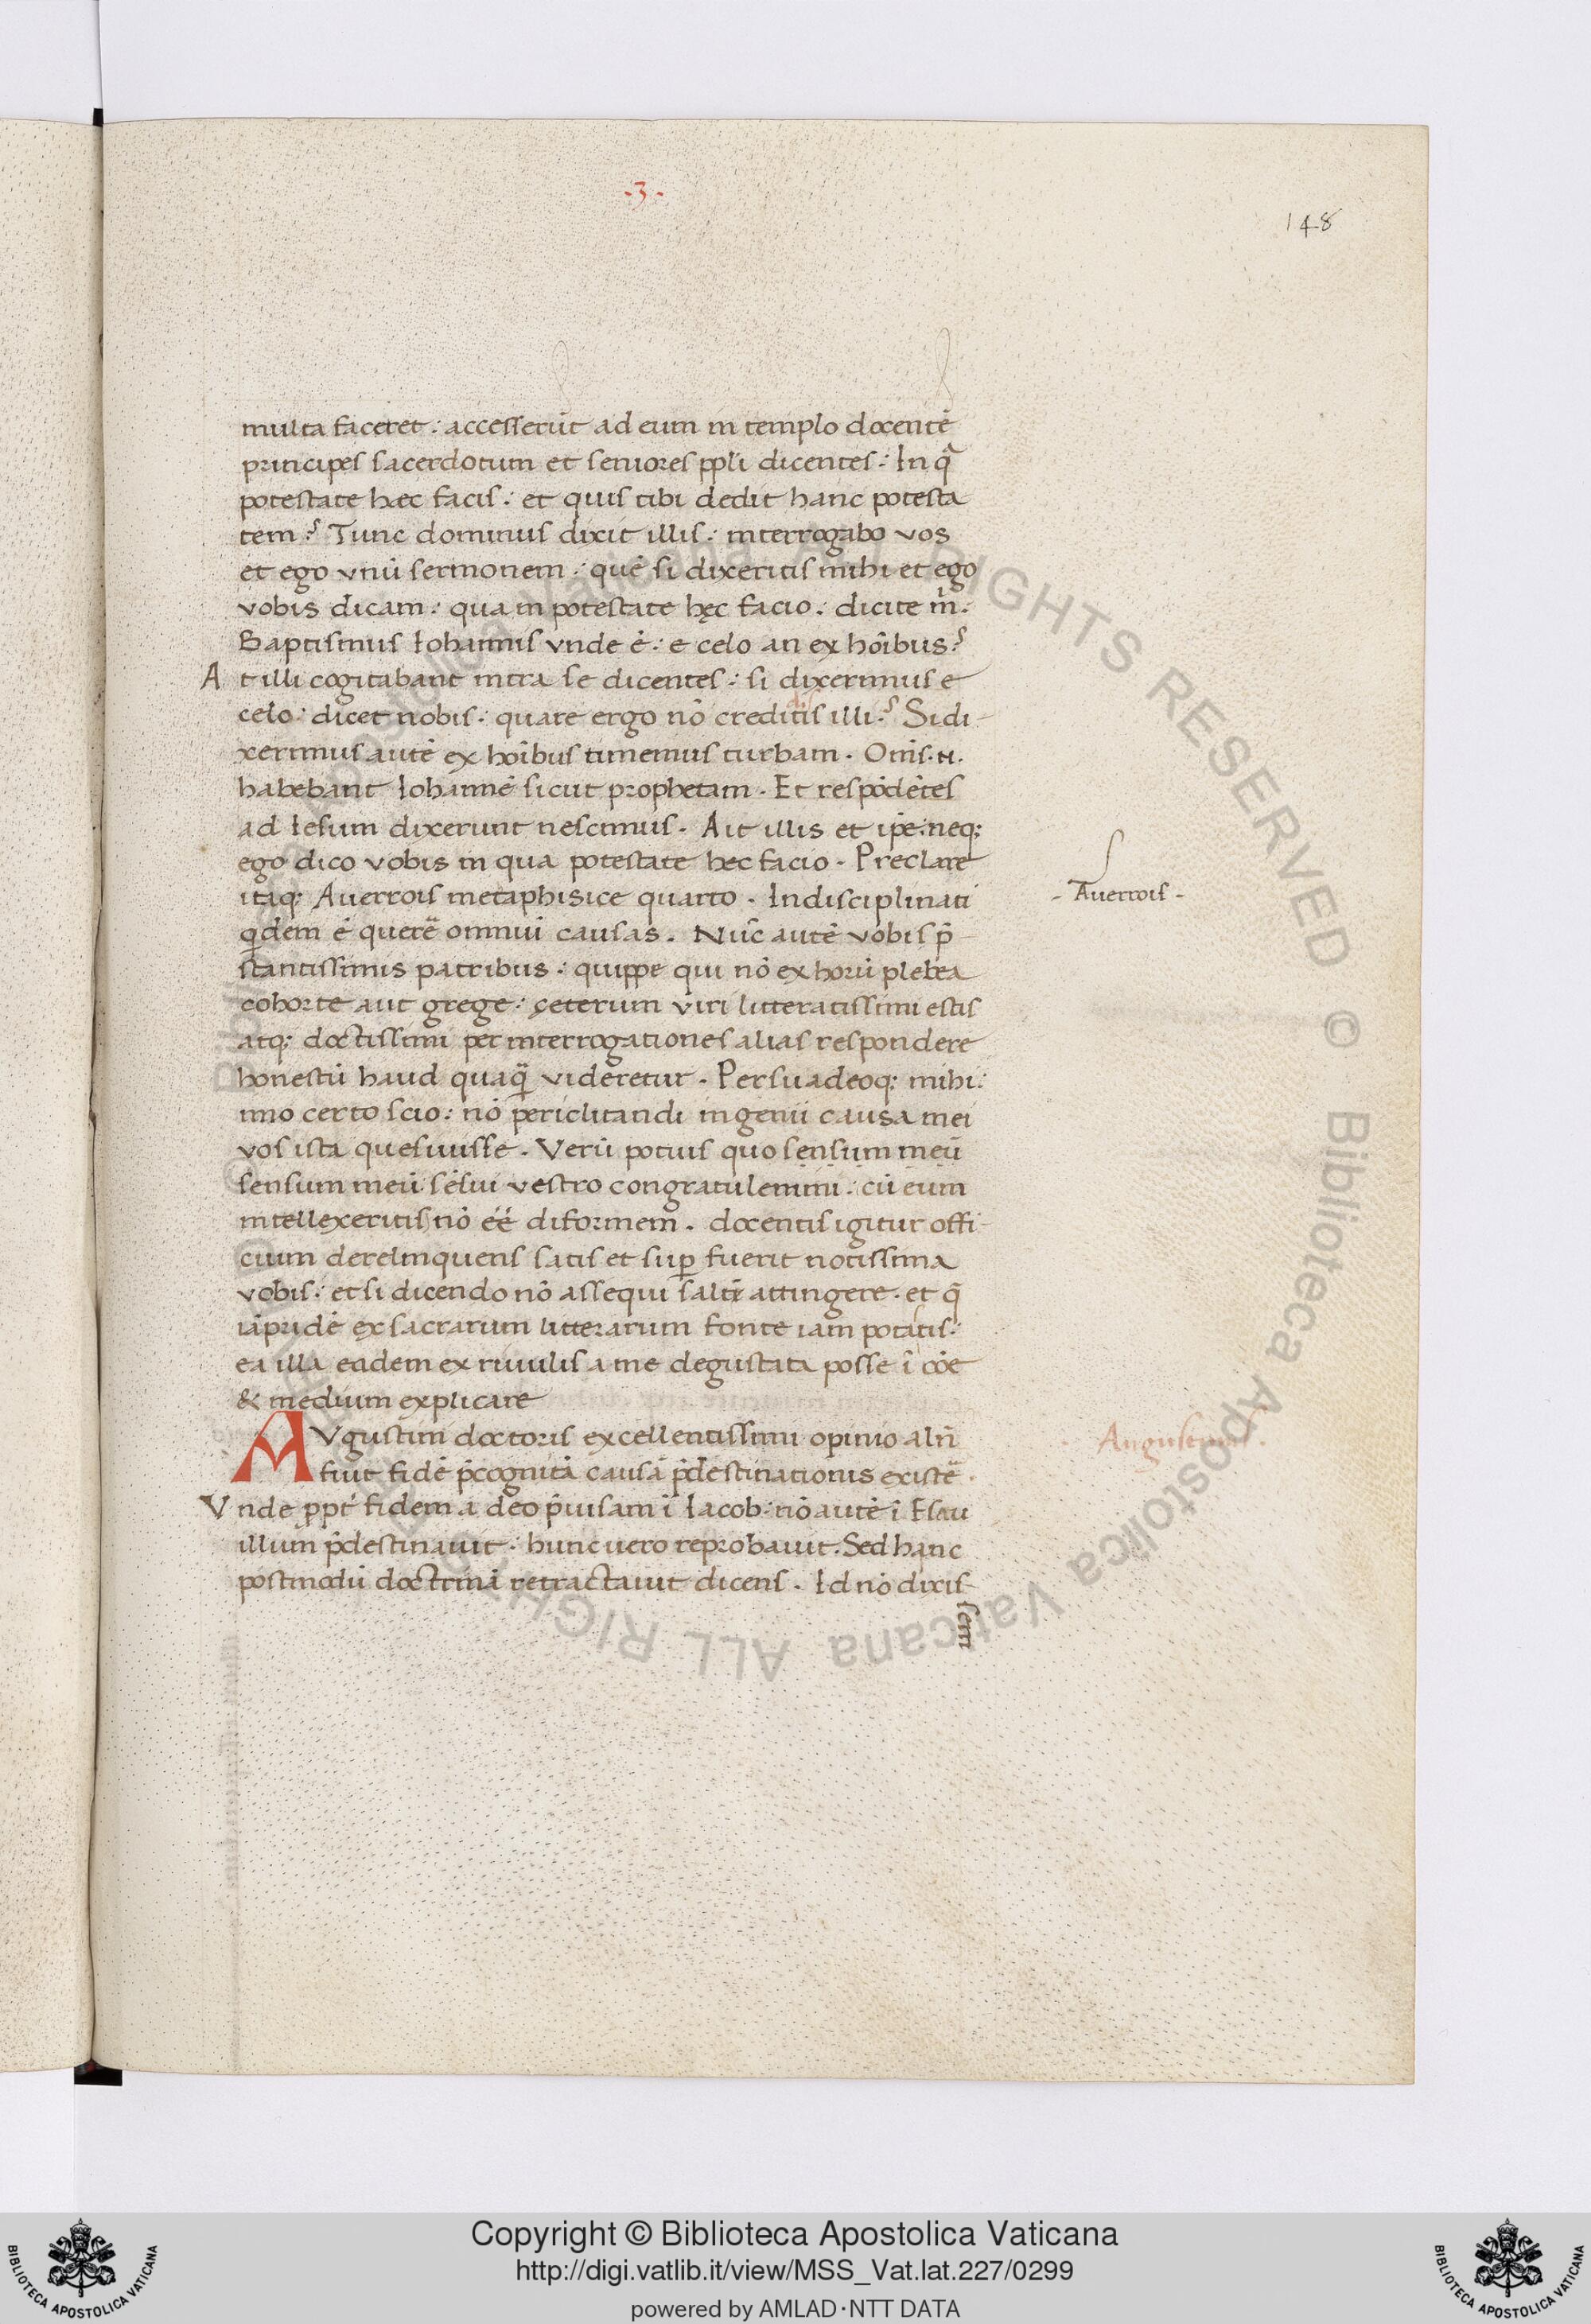 ·3·
148
multa faceret: accesserūt ad eum in templo docentē
principes sacerdotum et seniores ppl̄i dicentes: In qͣ
potestate haec facis: et quis tibi dedit hanc potesta
tem? Tunc dominus dixit illis: interrogabo vos
et ego vnū sermonem: quē si dixeritis mihi et ego
vobis dicam: qua in potestate hęc facio: dicite m̄.
Baptismus Iohannis vnde ē: e celo an ex hoībus?
At illi cogitabant intra se dicentes: si dixerimus e
celo: dicet nobis: quare ergo nō creditis illi? Si di-
xerimus autē ex hoībus timemus turbam. Om̄s .n.
habebant Iohannē sicut prophetam. Et respōdētes
ad Iesum dixerunt nescimus. Ait illis et ip̄e: neq;
ego dico vobis in qua potestate hec facio. Preclare
itaq; Auerrois metaphisice quarto. Indisciplinati
- Auerrois -
qͥdem ē querē̄ omniū causas. Nūc autē vobis p̄-
stantissimis patribus: quippe qui nō ex horū plebea
cohorte aut grege: çeterum viri litteratissimi estis
atq; doctissimi per interrogationes alias respondere
honestū haud quaqͣ̄ videretur. Persuadeoq; mihi:
imo certo scio: nō periclitandi ingenii causa mei
vos ista quesiuisse. Verū potius quo sensum meū
sensum meū sēsui vestro congratulemini: cū eum
intellexeritis nō ēē diformem. docentis igitur offi-
cium derelinquens satis et suꝑ fuerit notissima
vobis: et si dicendo nō assequi saltē attingere. et q̄
iāpridē ex sacrarum litterarum fonte iam potatis:
ea illa eadem ex riuulis a me degustata posse ī cōe
& medium explicare
AVgustini doctoris excellentissimi opinio alr̄
Augustinus.
fuit fidē p̄cognitā causā p̄destinationis existē̄.
Vnde ppt̄ fidem a deo p̄uisam ī Iacob: nō autē ī Esau
illum p̄destinauit: hunc uero reprobauit. Sed hanc
postmodū doctrinā retractauit dicens. Id nō dixis-
sem
Copyright © Biblioteca Apostolica Vaticana
http://digi.vatlib.it/view/MSS_Vat.lat.227/0299
powered by AMLAD·NTT DATA
BIBLIOTECA APOSTOLICA VATICANA
BIBLIOTECA APOSTOLICA VATICANA